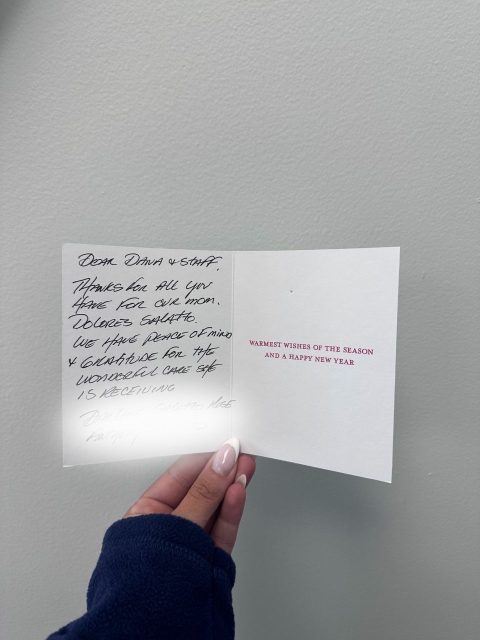 DEAR DANA & STAFF,
THANKS FOR ALL YOU
HAVE FOR OUR MOM.
DOLORES
WE HAVE PEACE OF MIND
& GRATITUDE FOR THE
WONDERFUL CARE SHE
IS RECEIVING
WARMEST WISHES OF THE SEASON
AND A HAPPY NEW YEAR